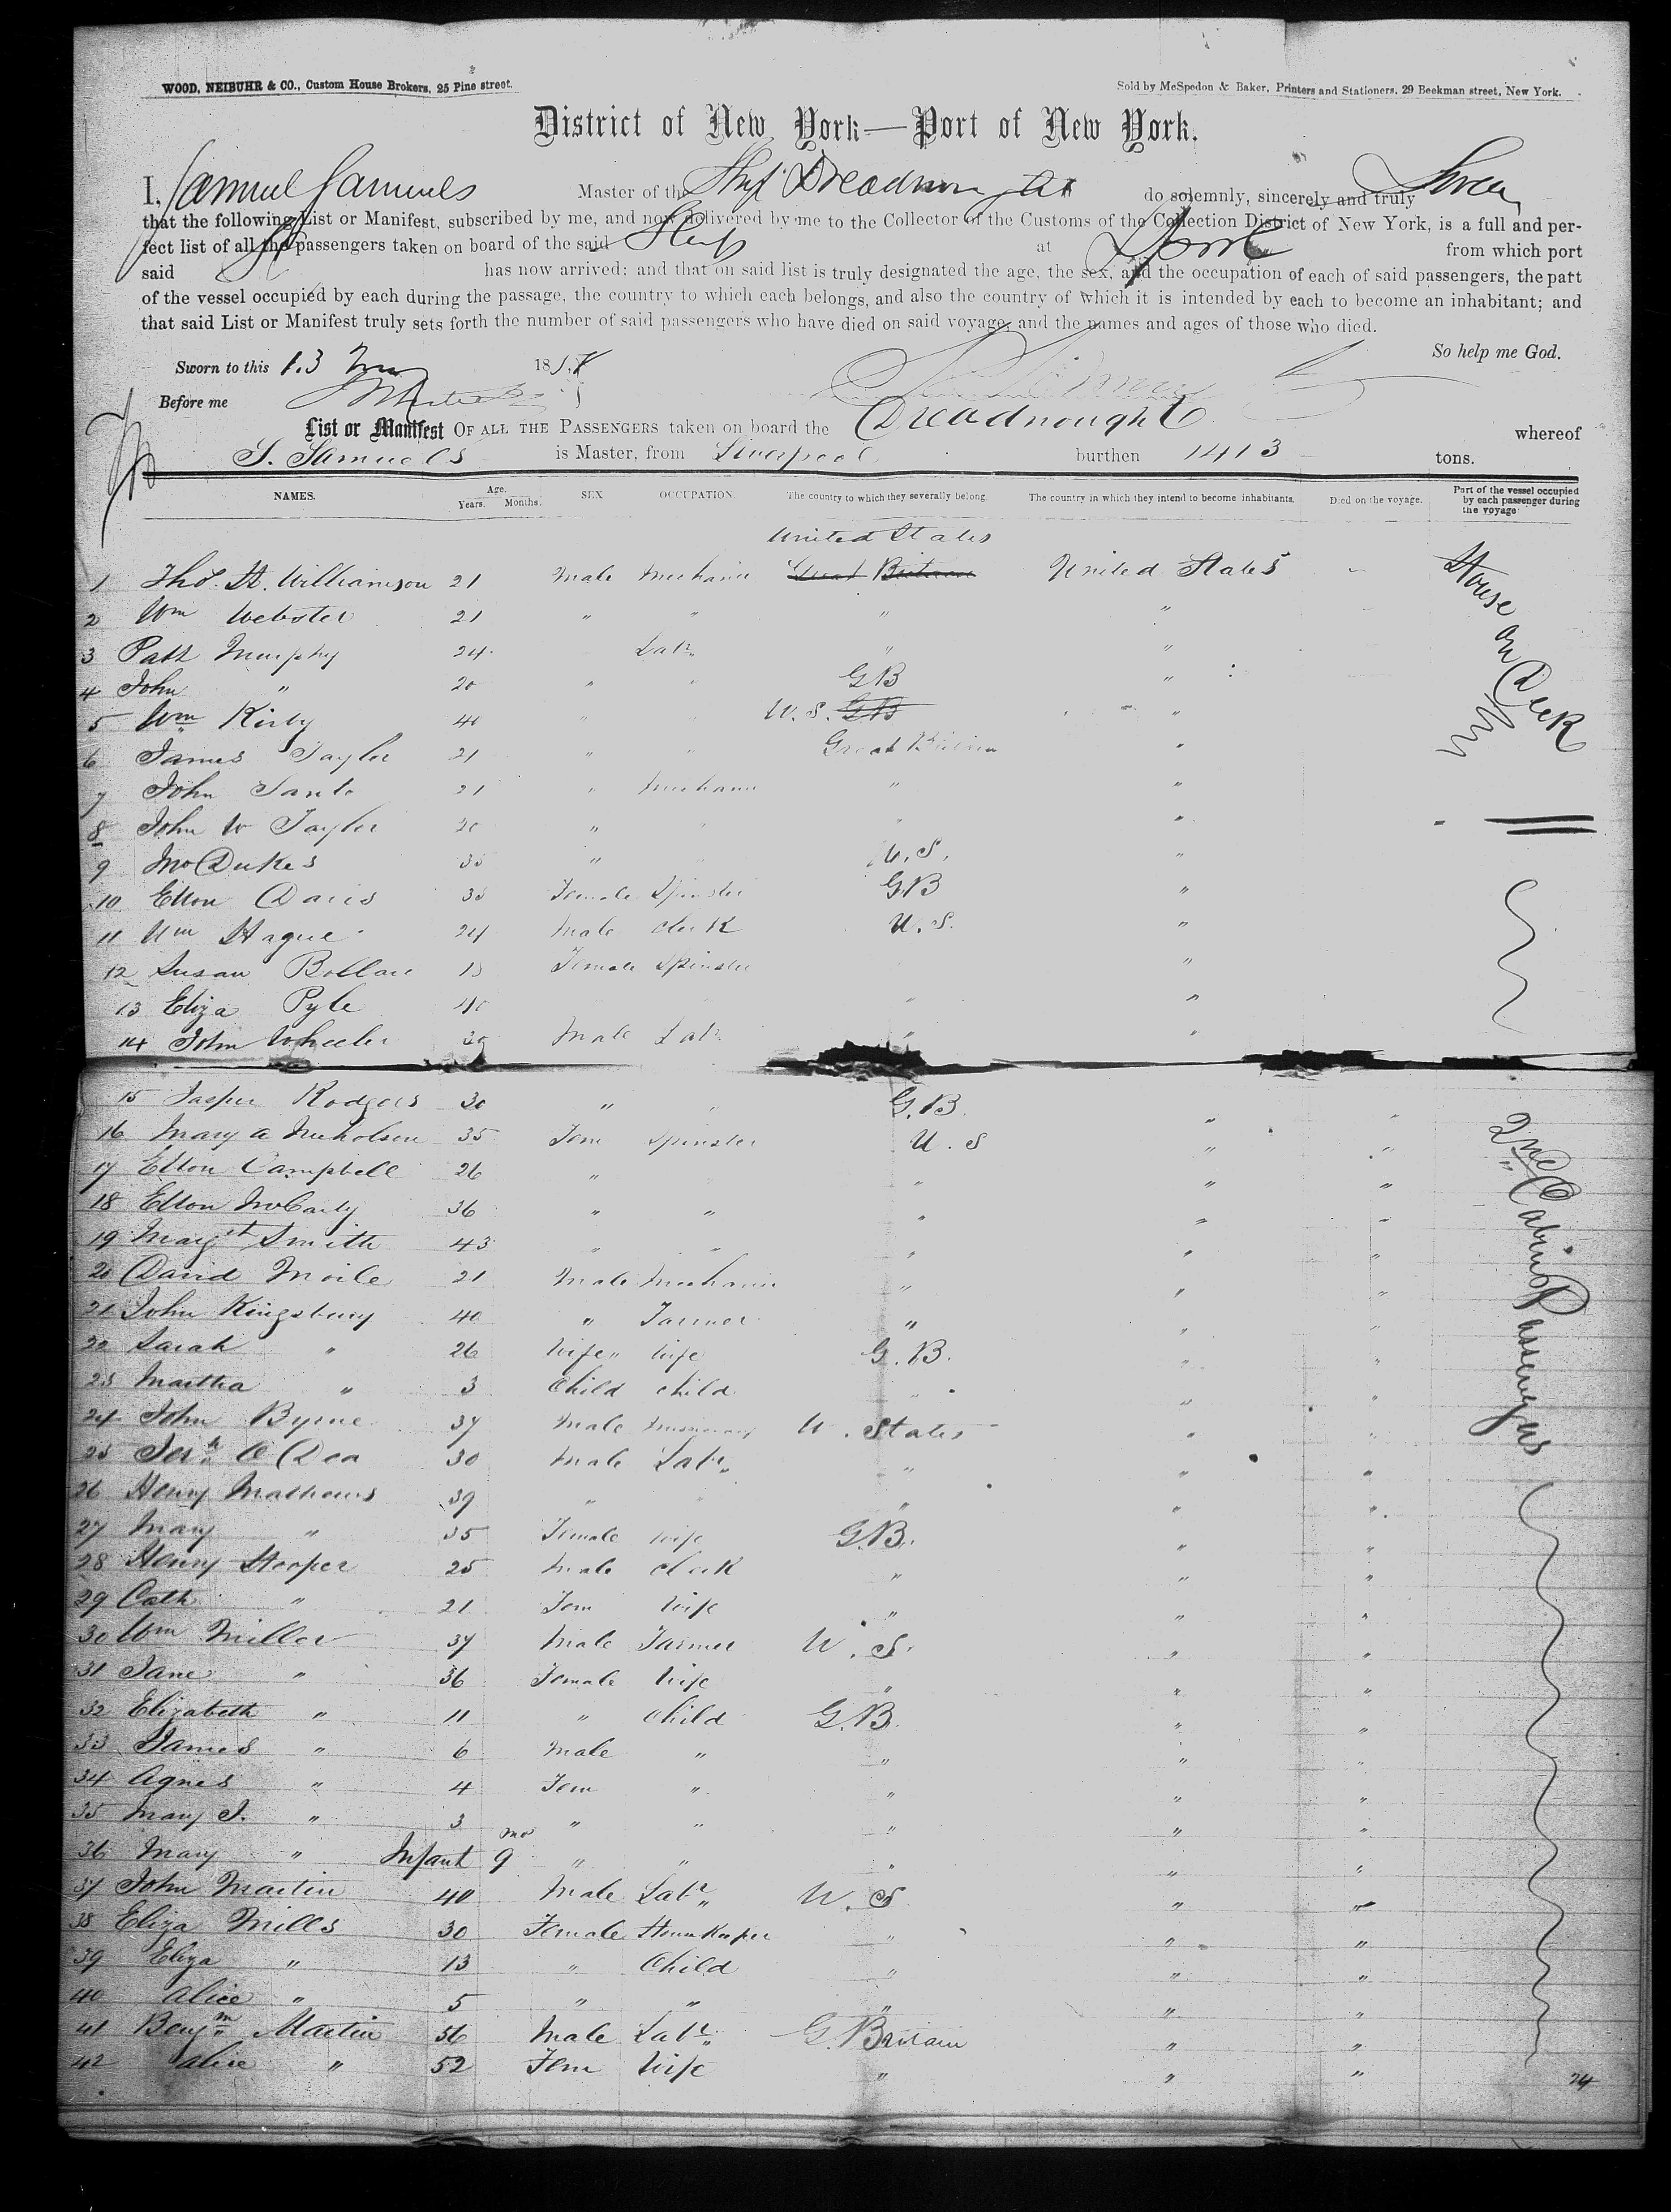 WOOD, NEIBUHR & CO., Custom House Brokers, 25 Pine street.
Sold by McSpedon & Baker, Printers and Stationers, 29 Beekman street, New York.
District of New York—Port of New York.
I, Samuel Samuels Master of the Ship Dreadnought do solemnly, sincerely and truly Swear
that the following List or Manifest, subscribed by me, and now delivered by me to the Collector of the Customs of the Collection District of New York, is a full and per-
fect list of all the passengers taken on board of the said Ship at Lpool from which port
said has now arrived; and that on said list is truly designated the age, the sex, and the occupation of each of said passengers, the part
of the vessel occupied by each during the passage, the country to which each belongs, and also the country of which it is intended by each to become an inhabitant; and
that said List or Manifest truly sets forth the number of said passengers who have died on said voyage, and the names and ages of those who died.
So help me God.
Sworn to this 13 185
Before me
List or Manifest OF ALL THE PASSENGERS taken on board the Dreadnought whereof
S. Samuels is Master, from Liverpool burthen 1413 tons.
NAMES. Age. Years. Months. SEX OCCUPATION. The country to which they severally belong. The country in which they intend to become inhabitants. Died on the voyage. Part of the vessel occupied by each passenger during the voyage
United States
1 Thos. H. Williamson 21 Male Mechanic Great Britain United States
2 Wm Webster 21 " " " "
3 Patk Murphy 24 Labr " "
4 John " 20 " " GB "
5 Wm Kirby 40 " " U. S. GB "
6 James Taylor 21 " " Great Britain "
7 John 21 " Mechanic " "
8 John W Taylor 20 " " " "
House on Deck
9 Dukes 35 " " U. S. "
10 Ellen Davis 35 Female Spinster GB "
11 Wm Hague 24 Male Clerk U. S. "
12 Susan 18 Female Spinster "
13 Eliza Pyle 40 " "
14 John Wheeler Male Labr " "
15 Jasper Rodgers 30 " " G. B. " "
16 Mary A Nicholson 35 Fem Spinster U. S " "
17 Ellen Campbell 26 " " " " "
18 Ellen McCarty 36 " " " " "
19 Margt Smith 43 " " " " "
20 David Moile 21 Male Mechanic " " "
21 John Kingsbury 40 " Farmer " " "
22 Sarah " 26 Wife " Wife G. B. " "
23 Martha " 3 Child Child " " "
2nd Cabin Passengers
24 John Byrne 37 Male U. States " "
25 O Dea 30 Male Labr " " "
26 Henry Mathews 39 " " " " "
27 Mary " 35 Female Wife G.B. " "
28 Henry Hooper 25 Male Clerk " " "
29 Cath " 21 Fem Wife " " "
30 Wm Miller 37 Male Farmer U. S. " "
31 Jane " 36 Female Wife " " "
32 Elizabeth " 11 " Child G.B. " "
33 James " 6 Male " " " "
34 Agnes " 4 Fem " " " "
35 Mary J. " 3 " " " " "
36 Mary " Infant 9 mo " " " " "
37 John Martin 40 Male Labr U. S " "
38 Eliza Mills 30 Female House Keeper " " "
39 Eliza " 13 " Child " " "
40 Alice " 5 " " " " "
41 Benjm Martin 56 Male Labr G. Britain " "
42 Alice " 52 Fem Wife " " "
24